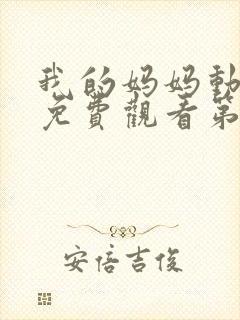 我的妈妈動
免費觀看第
安倍吉俊